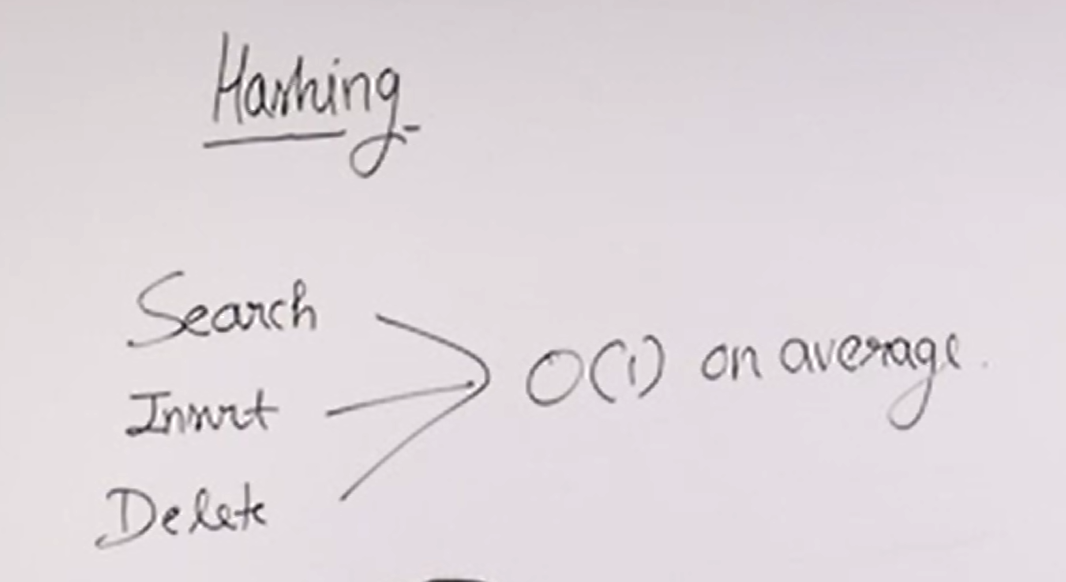 Hashing
Search
Insert
Delete
O(1) on average.